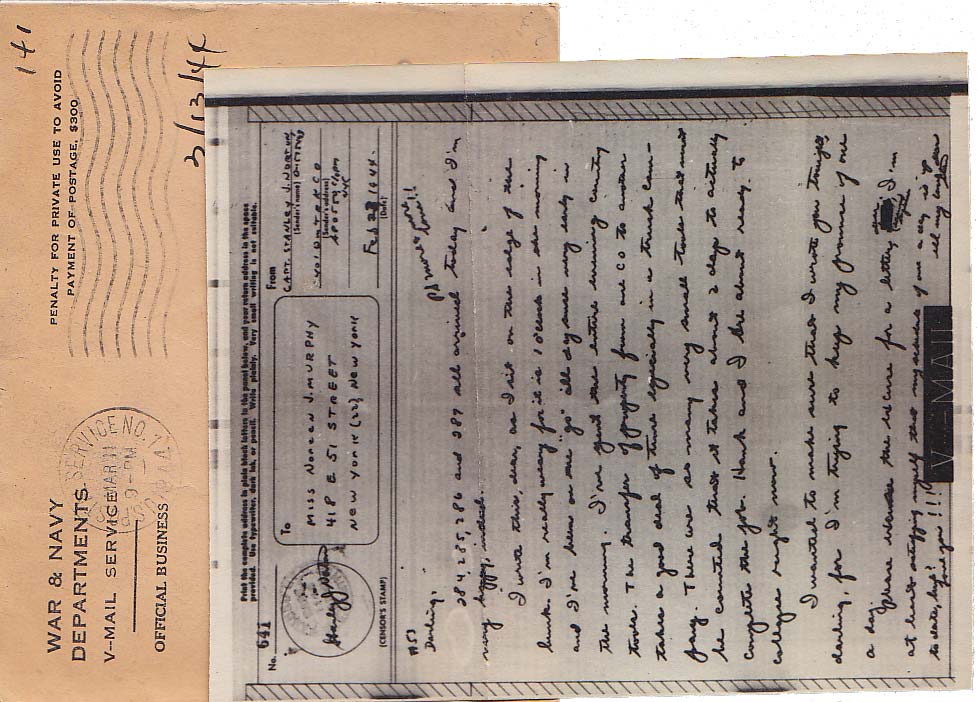 141
PENALTY FOR PRIVATE USE TO AVOID
PAYMENT OF POSTAGE, $300
3/13/44
WAR & NAVY
DEPARTMENTS
V–MAIL SERVICE
OFFICIAL BUSINESS
SERVICE NO.
MAR 11
9-PM
Print the complete address in plain block letters in the panel below, and your return address in the space
provided. Use typewriter, dark ink, or pencil. Write plainly. Very small writing is not suitable.
No. 641
To
MISS NOREEN J. MURPHY
418 E 51 STREET
NEW YORK (22) NEW YORK
From
CAPT. STANLEY J. NORTON
(Sender's name)
(Sender's address)
Feb 28 1944
(Date)
(CENSOR'S STAMP)
#53
Darling,
284, 285, 286 and 287 all arrived today and I'm
very happy, indeed.
I write this, dear, as I sit on the edge of the
bunk. I'm really weary for it is 10 o'clock in the morning
and I've been on the "go" all day since very early in
the morning. I've spent the entire evening counting
tools. The transfer of property from one CO to another
takes a good deal of time especially in a truck com-
pany. There are so many very small tools that must
be counted that it takes about 2 days to actually
complete the job. Hank and I are about ready to
collapse right now.
I wanted to make sure that I wrote you tonight,
darling, for I'm trying to keep my promise of one
a day.
Please excuse the excuse for a letter, I'm
at least satisfying myself that my schedule of one a day is up
to date, hey!
Love you !!!
V–MAIL